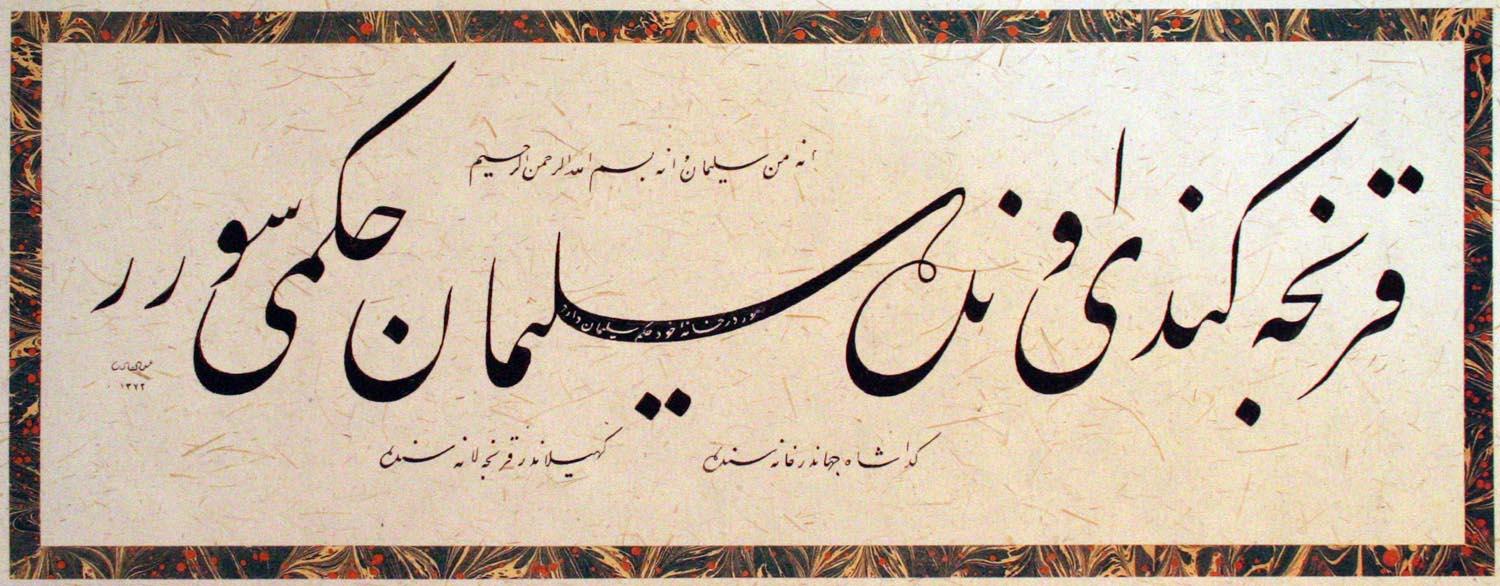 انه من سلیمان و انه بسم الله الرحمن الرحیم
قرنجه کندی اونده سلیمان حکمی سورر
مور در خانه خود حکم سلیمان دارد
کدا شاه جهاندر خانه سنده
قرنجه لانه سنده
١٣٧٢